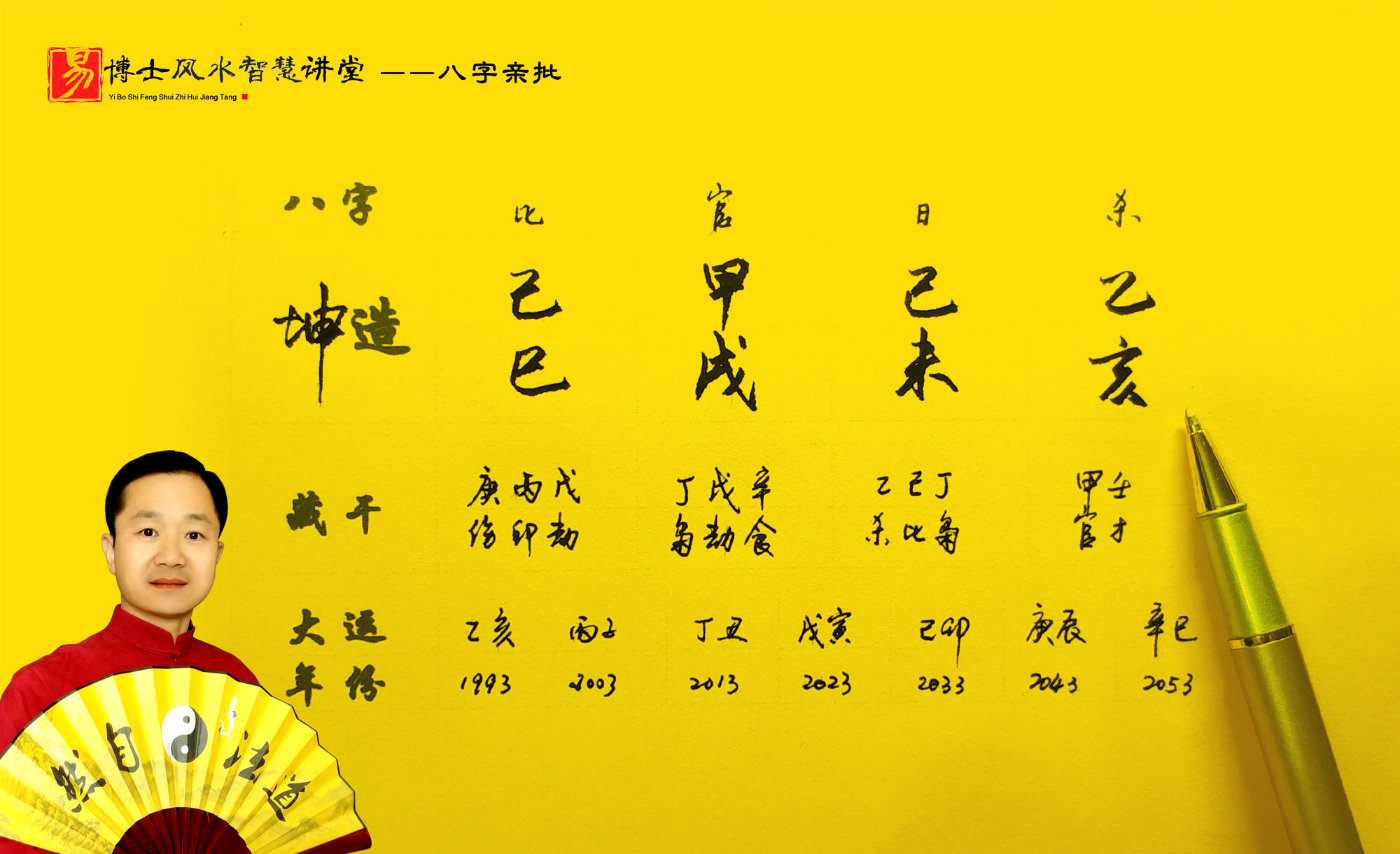 易 博士风水智慧讲堂 ——八字亲批
Yi Bo Shi Feng Shui Zhi Hui Jiang Tang
八字 比 官 日 杀
坤造 己 甲 己 乙
巳 戌 未 亥
藏干 庚丙戊 丁戊辛 乙己丁 甲壬
伤印劫 枭劫食 杀比枭 官才
大运 乙亥 丙子 丁丑 戊寅 己卯 庚辰 辛巳
年份 1993 2003 2013 2023 2033 2043 2053
然自 法道